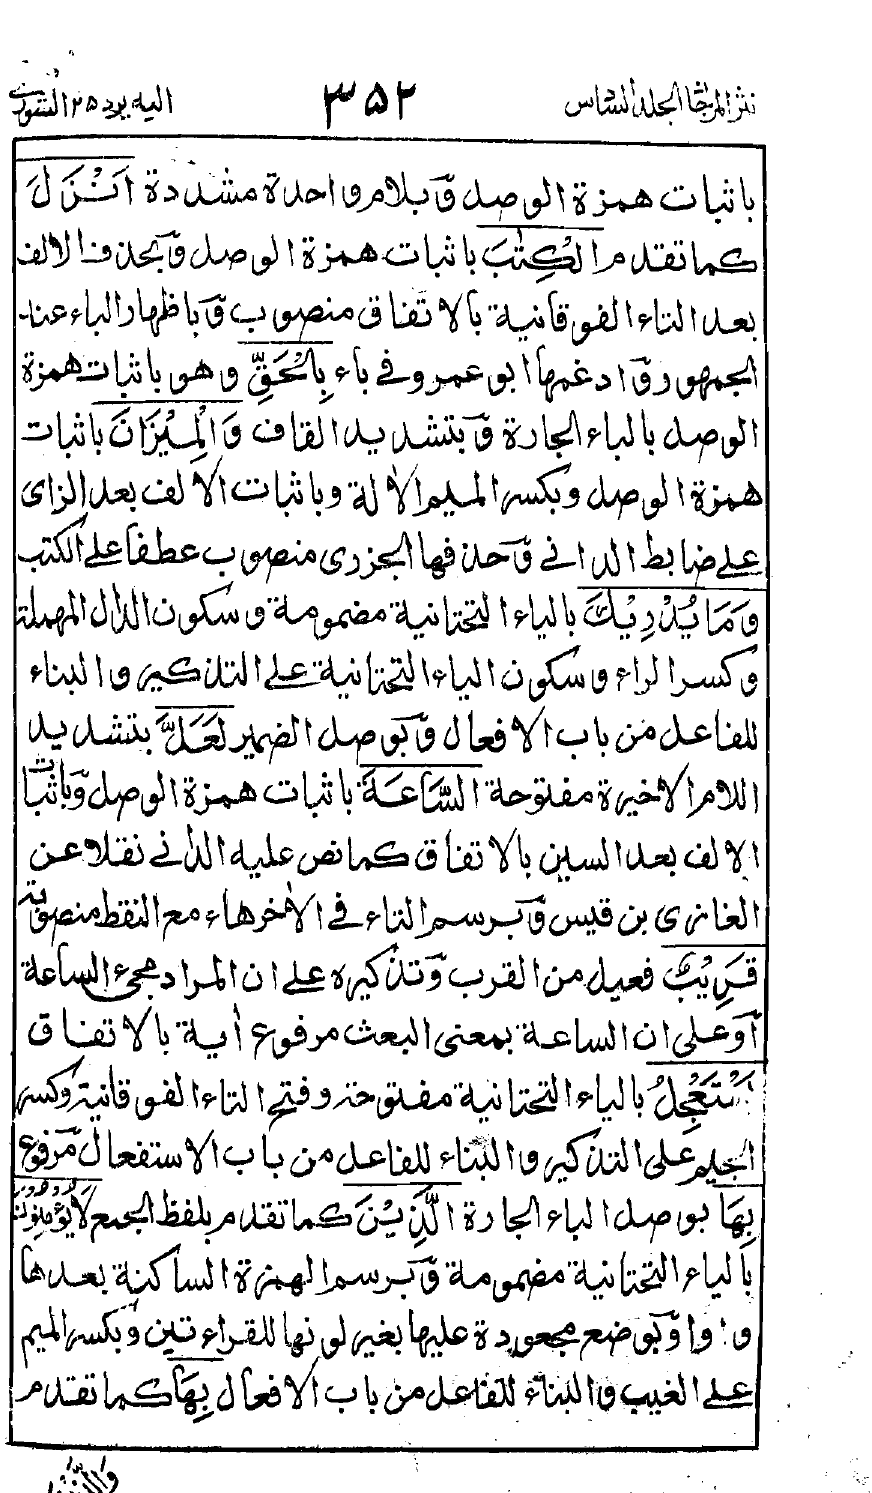 نثر المرجان الجلد السادس ٣٥٢ اليه يرد ٢٥ الشورى
باثبات همزة الوصل وَبلام واحدة مشددة اَنْزَلَ
كما تقدم الْكِتٰبَ باثبات همزة الوصل وَبحذف الالف
بعد التاء الفوقانية بالاتفاق منصوب وَباظهار الباء عند
الجمهور وَادغمها ابو عمرو في باء بِالْحَقِّ وهو باثبات همزة
الوصل بالباء الجارة وَبتشديد القاف وَالْمِيْزَانَ باثبات
همزة الوصل وبكسر الميم الاٰلة وباثبات الالف بعد الزاى
على ضابط الداني وَحذفها الجزرى منصوب عطفا على الكتب
وَمَا يُدْرِيْكَ بالياء التحتانية مضمومة وسكون الدال المهملة
وكسر الراء وسكون الياء التحتانية على التذكير والبناء
للفاعل من باب الافعال وَبوصل الضمير لَعَلَّ بتشديد
اللام الاخيرة مفتوحة السَّاعَةَ باثبات همزة الوصل وَباثبات
الالف بعد السين بالاتفاق كما نص عليه الداني نقلا عن
الغازى بن قيس وَبرسم التاء في الاٰخر هاء مع النقط منصوبة
قَرِيْبٌ فعيل من القرب وَتذكيره على ان المراد مجىء الساعة
اَوعلى ان الساعة بمعنى البعث مرفوع اٰية بالاتفاق
يَسْتَعْجِلُ بالياء التحتانية مفتوحة وفتح التاء الفوقانية وكسر
الجيم على التذكير والبناء للفاعل من باب الاستفعال مرفوع
بِهَا بوصل الباء الجارة الَّذِيْنَ كما تقدم بلفظ الجمع لَا يُؤْمِنُوْنَ
بالياء التحتانية مضمومة وَبرسم الهمزة الساكنة بعدها
واوا وَبوضع مجعودة عليها بغير لونها للقراءتين وَبكسر الميم
على الغيب والبناء للفاعل من باب الافعال بِهَا كما تقدم
وَالَّذِيْنَ